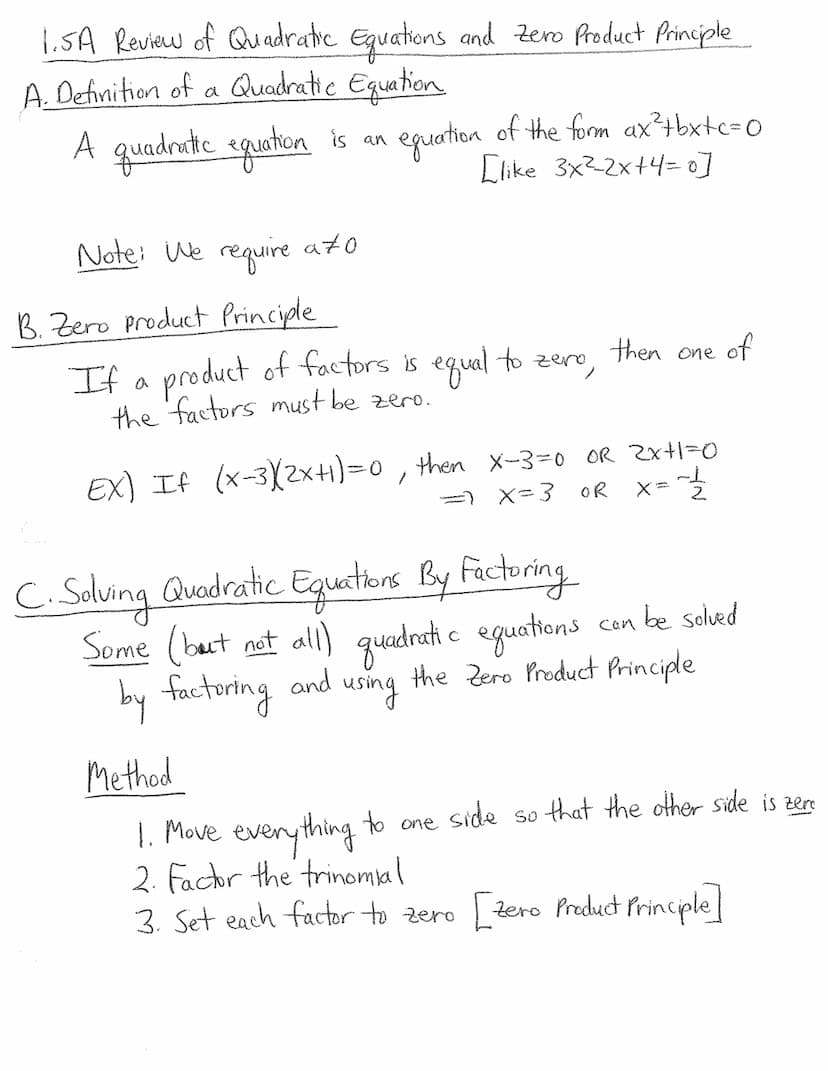 1.5A Review of Quadratic Equations and Zero Product Principle
A. Definition of a Quadratic Equation
A quadratic equation is an equation of the form ax²+bx+c=0
[like 3x²-2x+4=0]
Note: We require a≠0
B. Zero Product Principle
If a product of factors is equal to zero, then one of
the factors must be zero.
EX) If (x-3)(2x+1)=0, then x-3=0 OR 2x+1=0
⇒ x=3 OR x=-1/2
C. Solving Quadratic Equations By Factoring
Some (but not all) quadratic equations can be solved
by factoring and using the Zero Product Principle
Method
1. Move everything to one side so that the other side is zero
2. Factor the trinomial
3. Set each factor to zero [Zero Product Principle]